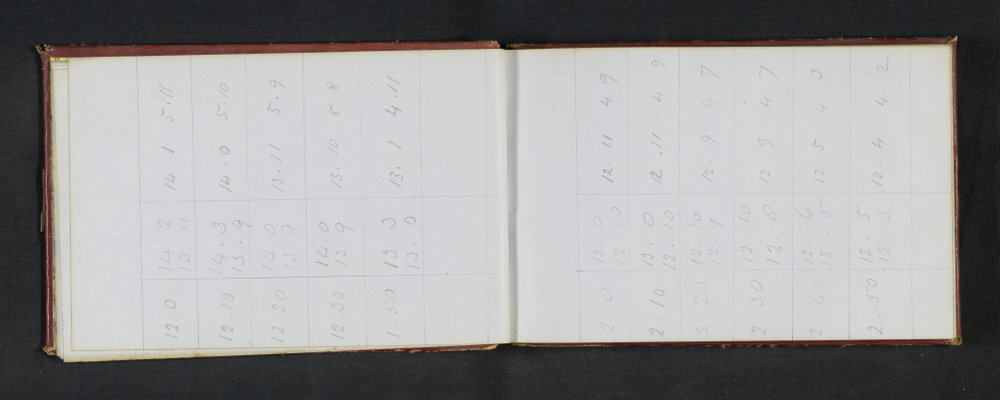 12.0 14.2 14.1 5.11
13.11
12.10 14.3 14.0 5.10
13.9
12.20 14.0 13.11 5.9
13.9
12.30 14.0 13.10 5.8
13.9
1.50 13.3 13.1 4.11
13.0
2.0 13.0 12.11 4.9
12.10
2.10 13.0 12.11 4.9
12.10
2.20 12.10 12.9 4.7
12.9
2.30 12.10 12.9 4.7
12.8
2.40 12.6 12.5 4.3
12.5
2.50 12.5 12.4 4.2
12.3